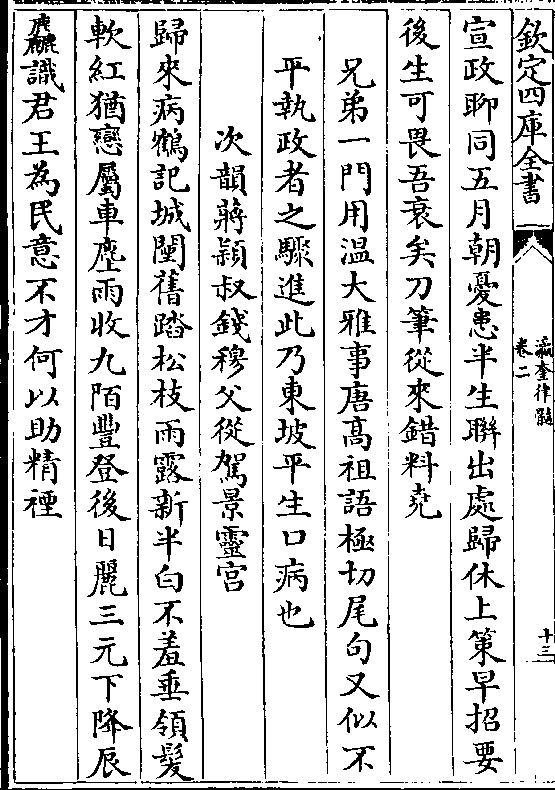 欽定四庫全書
瀛奎律髓
卷二
十三
宣政聊同五月朝憂患半生聯出處歸休上策早招要
後生可畏吾衰矣刀筆從來錯料堯
兄弟一門用温大雅事唐髙祖語極切尾句又似不
平執政者之驟進此乃東坡平生口病也
次韻蔣穎叔錢穆父從駕景靈宫
歸來病鶴記城闉舊踏松枝雨露新半白不羞垂領髮
軟紅猶戀屬車塵雨收九陌豐登後日麗三元下降辰
麤識君王為民意不才何以助精禋